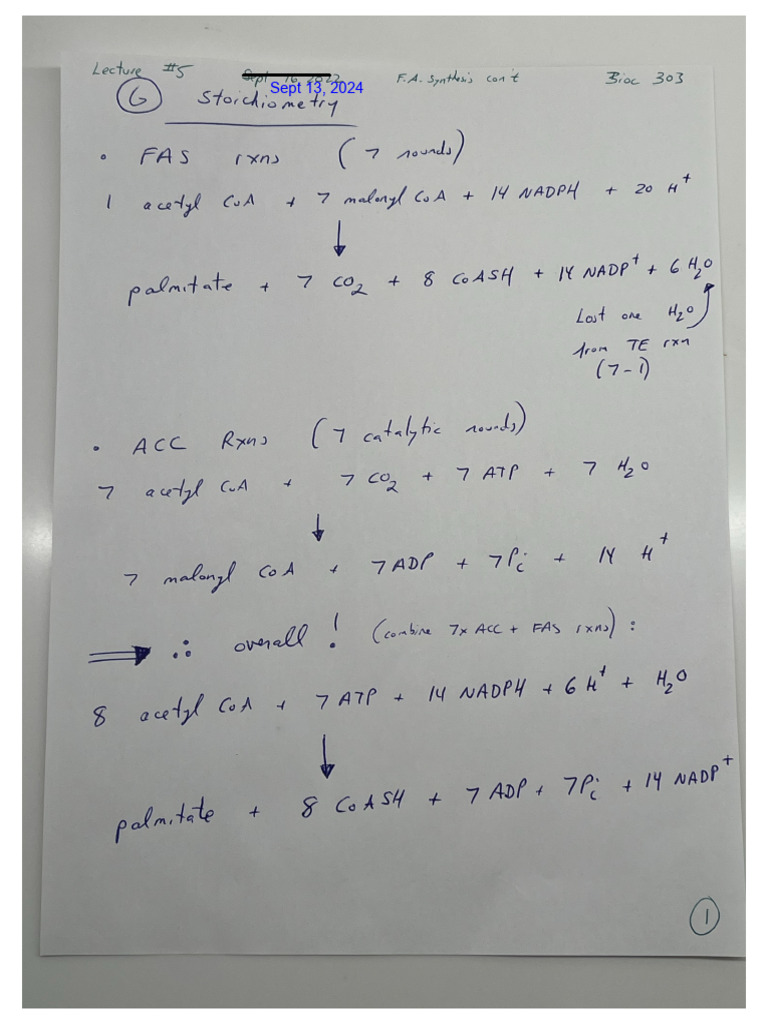 Lecture #5 Sept 16, 2022 F.A. Synthesis con't Bioc 303
Sept 13, 2024
6 Stoichiometry
• FAS rxns (7 rounds)
1 acetyl CoA + 7 malonyl CoA + 14 NADPH + 20 H⁺
↓
palmitate + 7 CO₂ + 8 CoASH + 14 NADP⁺ + 6 H₂O
Lost one H₂O
from TE rxn
(7-1)
• ACC Rxns (7 catalytic rounds)
7 acetyl CoA + 7 CO₂ + 7 ATP + 7 H₂O
↓
7 malonyl CoA + 7 ADP + 7Pi + 14 H⁺
⇒ ∴ overall! (combine 7x ACC + FAS rxns):
8 acetyl CoA + 7 ATP + 14 NADPH + 6 H⁺ + H₂O
↓
palmitate + 8 CoASH + 7 ADP + 7Pi + 14 NADP⁺
1